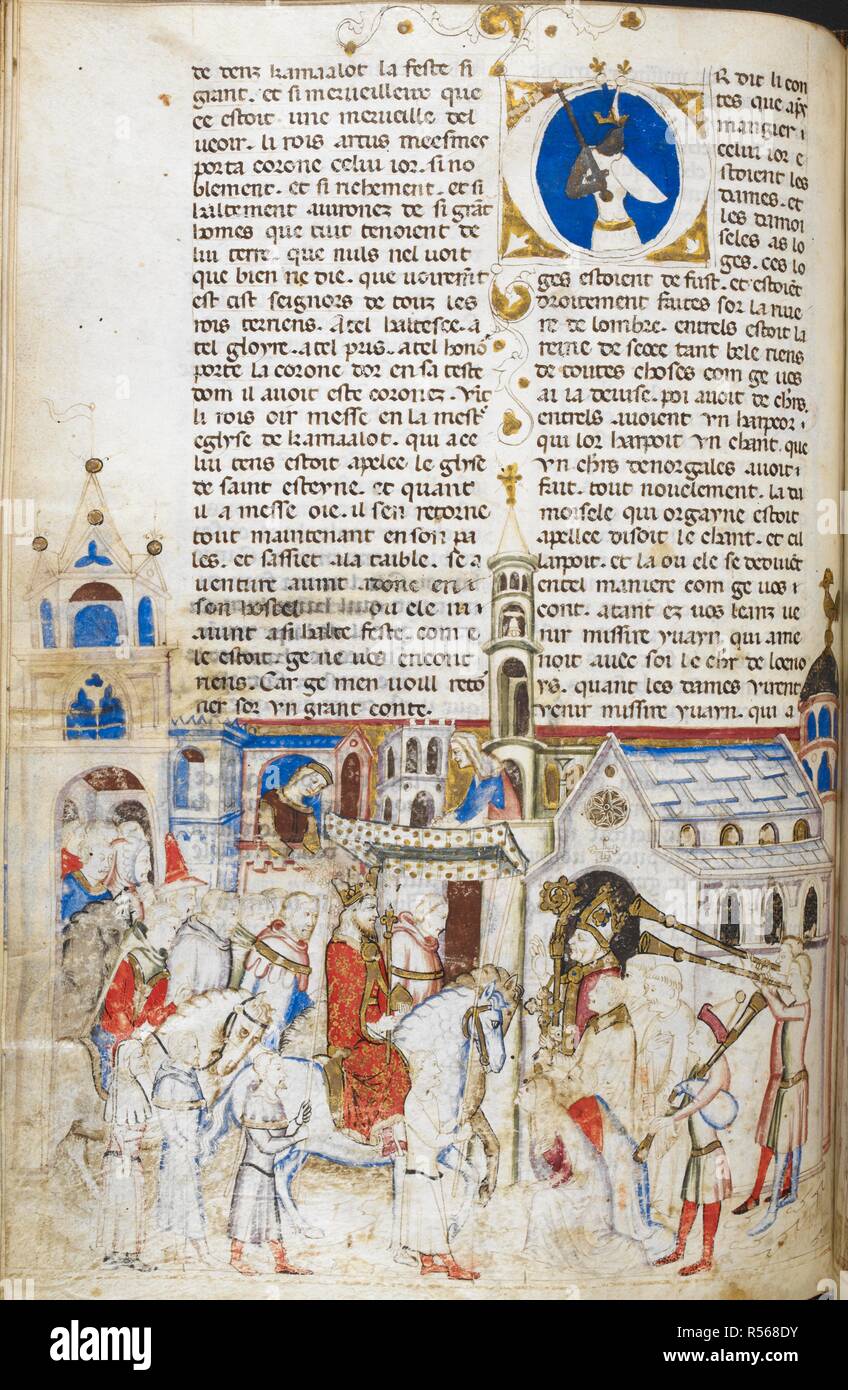 de denz kamaalot la feste si
grant. et si merveilleux que
ce estoit une merveille del
veoir. li rois artus meesmes
porta corone celui ior. si no
blement. et si richement. et si
haltement avironez de si grāt
homes que tuit tenoient de
lui terre. que nuls nel voit
que bien ne die. que voiremēt
est cist seignors de touz les
rois terriens. A tel haltesce. a
tel gloyre. a tel pris. a tel honō
porte la corone dor en sa teste
dom il avoit este coronez. Vīt
li rois oir messe en la mestʳ
eglyse de kamaalot. qui a ce
lui tens estoit apelee le glyse
de saint esteyne. et quant
il a messe oie. il sen retorne
tout maintenant en son pa
les. et sassiet a la table. se a
venture avint adonc en i
son hostel ou ele ni i
avint a si halte feste. com e
le estoit. ge ne vos encont
riens. Car ge men voill reto
ner sor vn grant conte.
R dit li con
tes que apʳ
mangier i
celui ior e
stoient les
dames. et
les damoi
seles as lo
ges. ces lo
ges estoient de fust. et estoiēt
droitement faites sor la rive
re de lombre. entrels estoit la
reine de scoce tant bele riens
de toutes choses com ge vos
ai la devise. poi avoit de chrs.
entrels avoient vn harpeor i
qui lor harpoit vn chant. que
vn chrs de norgales avoit i
fait. tout novelement. la da
moisele qui orgayne estoit
apellee disoit le chant. et cil
harpoit. et la ou ele se deduiēt
en tel maniere com ge vos i
cont. atant ez vos leanz ve
nir missire yvayn. qui ame
noit avec soi le chr de loeno
ys. quant les dames virent
venir missire yvayn. qui a
alamy
Image ID: R568DY
www.alamy.com